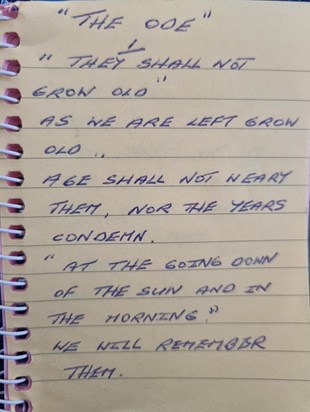 "THE ODE"
" THEY SHALL NOT
GROW OLD"
AS WE ARE LEFT GROW
OLD ..
AGE SHALL NOT WEARY
THEM, NOR THE YEARS
CONDEMN.
"AT THE GOING DOWN
OF THE SUN AND IN
THE MORNING."
WE WILL REMEMBER
THEM.